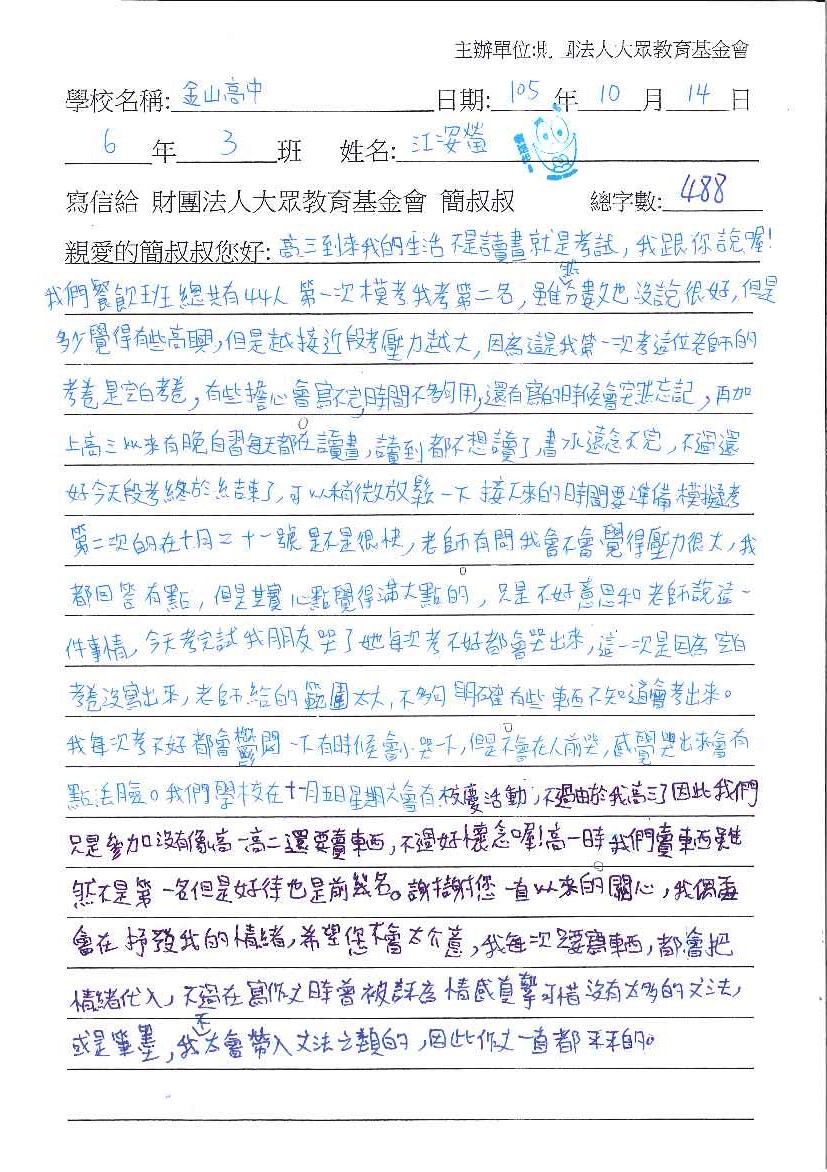 主辦單位:財團法人大眾教育基金會
學校名稱: 金山高中 日期: 105 年 10 月 14 日
6 年 3 班 姓名: 江姿螢
寫信給 財團法人大眾教育基金會 簡叔叔 總字數: 488
親愛的簡叔叔您好: 高三到來我的生活 不是讀書就是考試,我跟你說喔!
我們餐飲班總共有44人 第一次模考我考第二名,雖然分數也沒說很好,但是
多少覺得有些高興,但是越接近段考壓力越大,因為這是我第一次考這位老師的
考卷是空白考卷,有些擔心會寫不完,時間不夠用,還有寫的時候會突然忘記,再加
上高三以來有晚自習每天都在讀書,讀到都不想讀了,書永遠念不完,不過還
好今天段考終於結束了,可以稍微放鬆一下 接下來的時間要準備模擬考
第二次的在十月二十一號 是不是很快,老師有問我會不會覺得壓力很大,我
都回答有點,但是其實心點覺得滿大點的,只是不好意思和老師說這一
件事情,今天考完試我朋友哭了她每次考不好都會哭出來,這一次是因為空白
考卷沒寫出來,老師給的範圍太大,不夠明確有些東西不知道會考出來。
我每次考不好都會鬱悶一下有時候會小哭一下,但是不會在人前哭,感覺哭出來會有
點丟臉。我們學校在十一月五日星期六會有校慶活動,不過由於我高三了因此我們
只是參加沒有像高一高二還要賣東西,不過好懷念喔!高一時我們賣東西雖
然不是第一名但是好待也是前幾名。謝謝您一直以來的關心,我偶爾
會在抒發我的情緒,希望您不會太介意,我每次只要寫東西,都會把
情緒代入,不過在寫作文時會被評為情感真摯可惜沒有太多的文法,
或是筆墨,我不太會帶入文法之類的,因此作文一直都平平的。